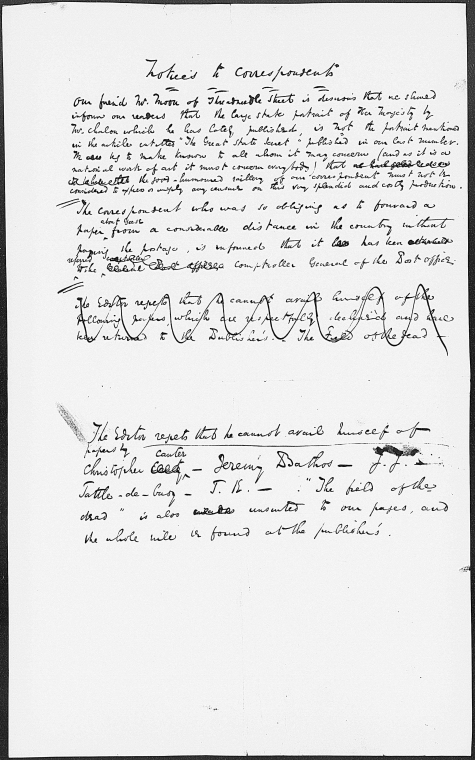 Notices to Correspondents
Our friend Mr. Moon of Threadneedle Street is desirous that we should
inform our readers that the large state portrait of Her Majesty by
Mr. Chalon which he has lately published, is not the portrait mentioned
in the article entitled "The Great State Secret" published in our last number.
We beg to make known to all whom it may concern (and as it is a
national work of art it must concern everybody) that
the good-humoured raillery of our correspondent must not be
considered to express or imply any censure on this very splendid and costly production.
The correspondent who was so obliging as to forward a
paper from a considerable distance in the country without
about Geese
paying the postage, is informed that it has been
referred
to the Comptroller General of the Post office.
The Editor regrets that he cannot avail himself of the
following papers, which are respectfully declined and have
been returned to the Publisher's. The Field of the dead —
The Editor regrets that he cannot avail himself of
papers by
Christopher Canter — Jeremy Diddler — J. J. —
Tattle-de-busy — T. B. — "The field of the
dead" is also unsuited to our pages, and
the whole will be found at the publisher's.